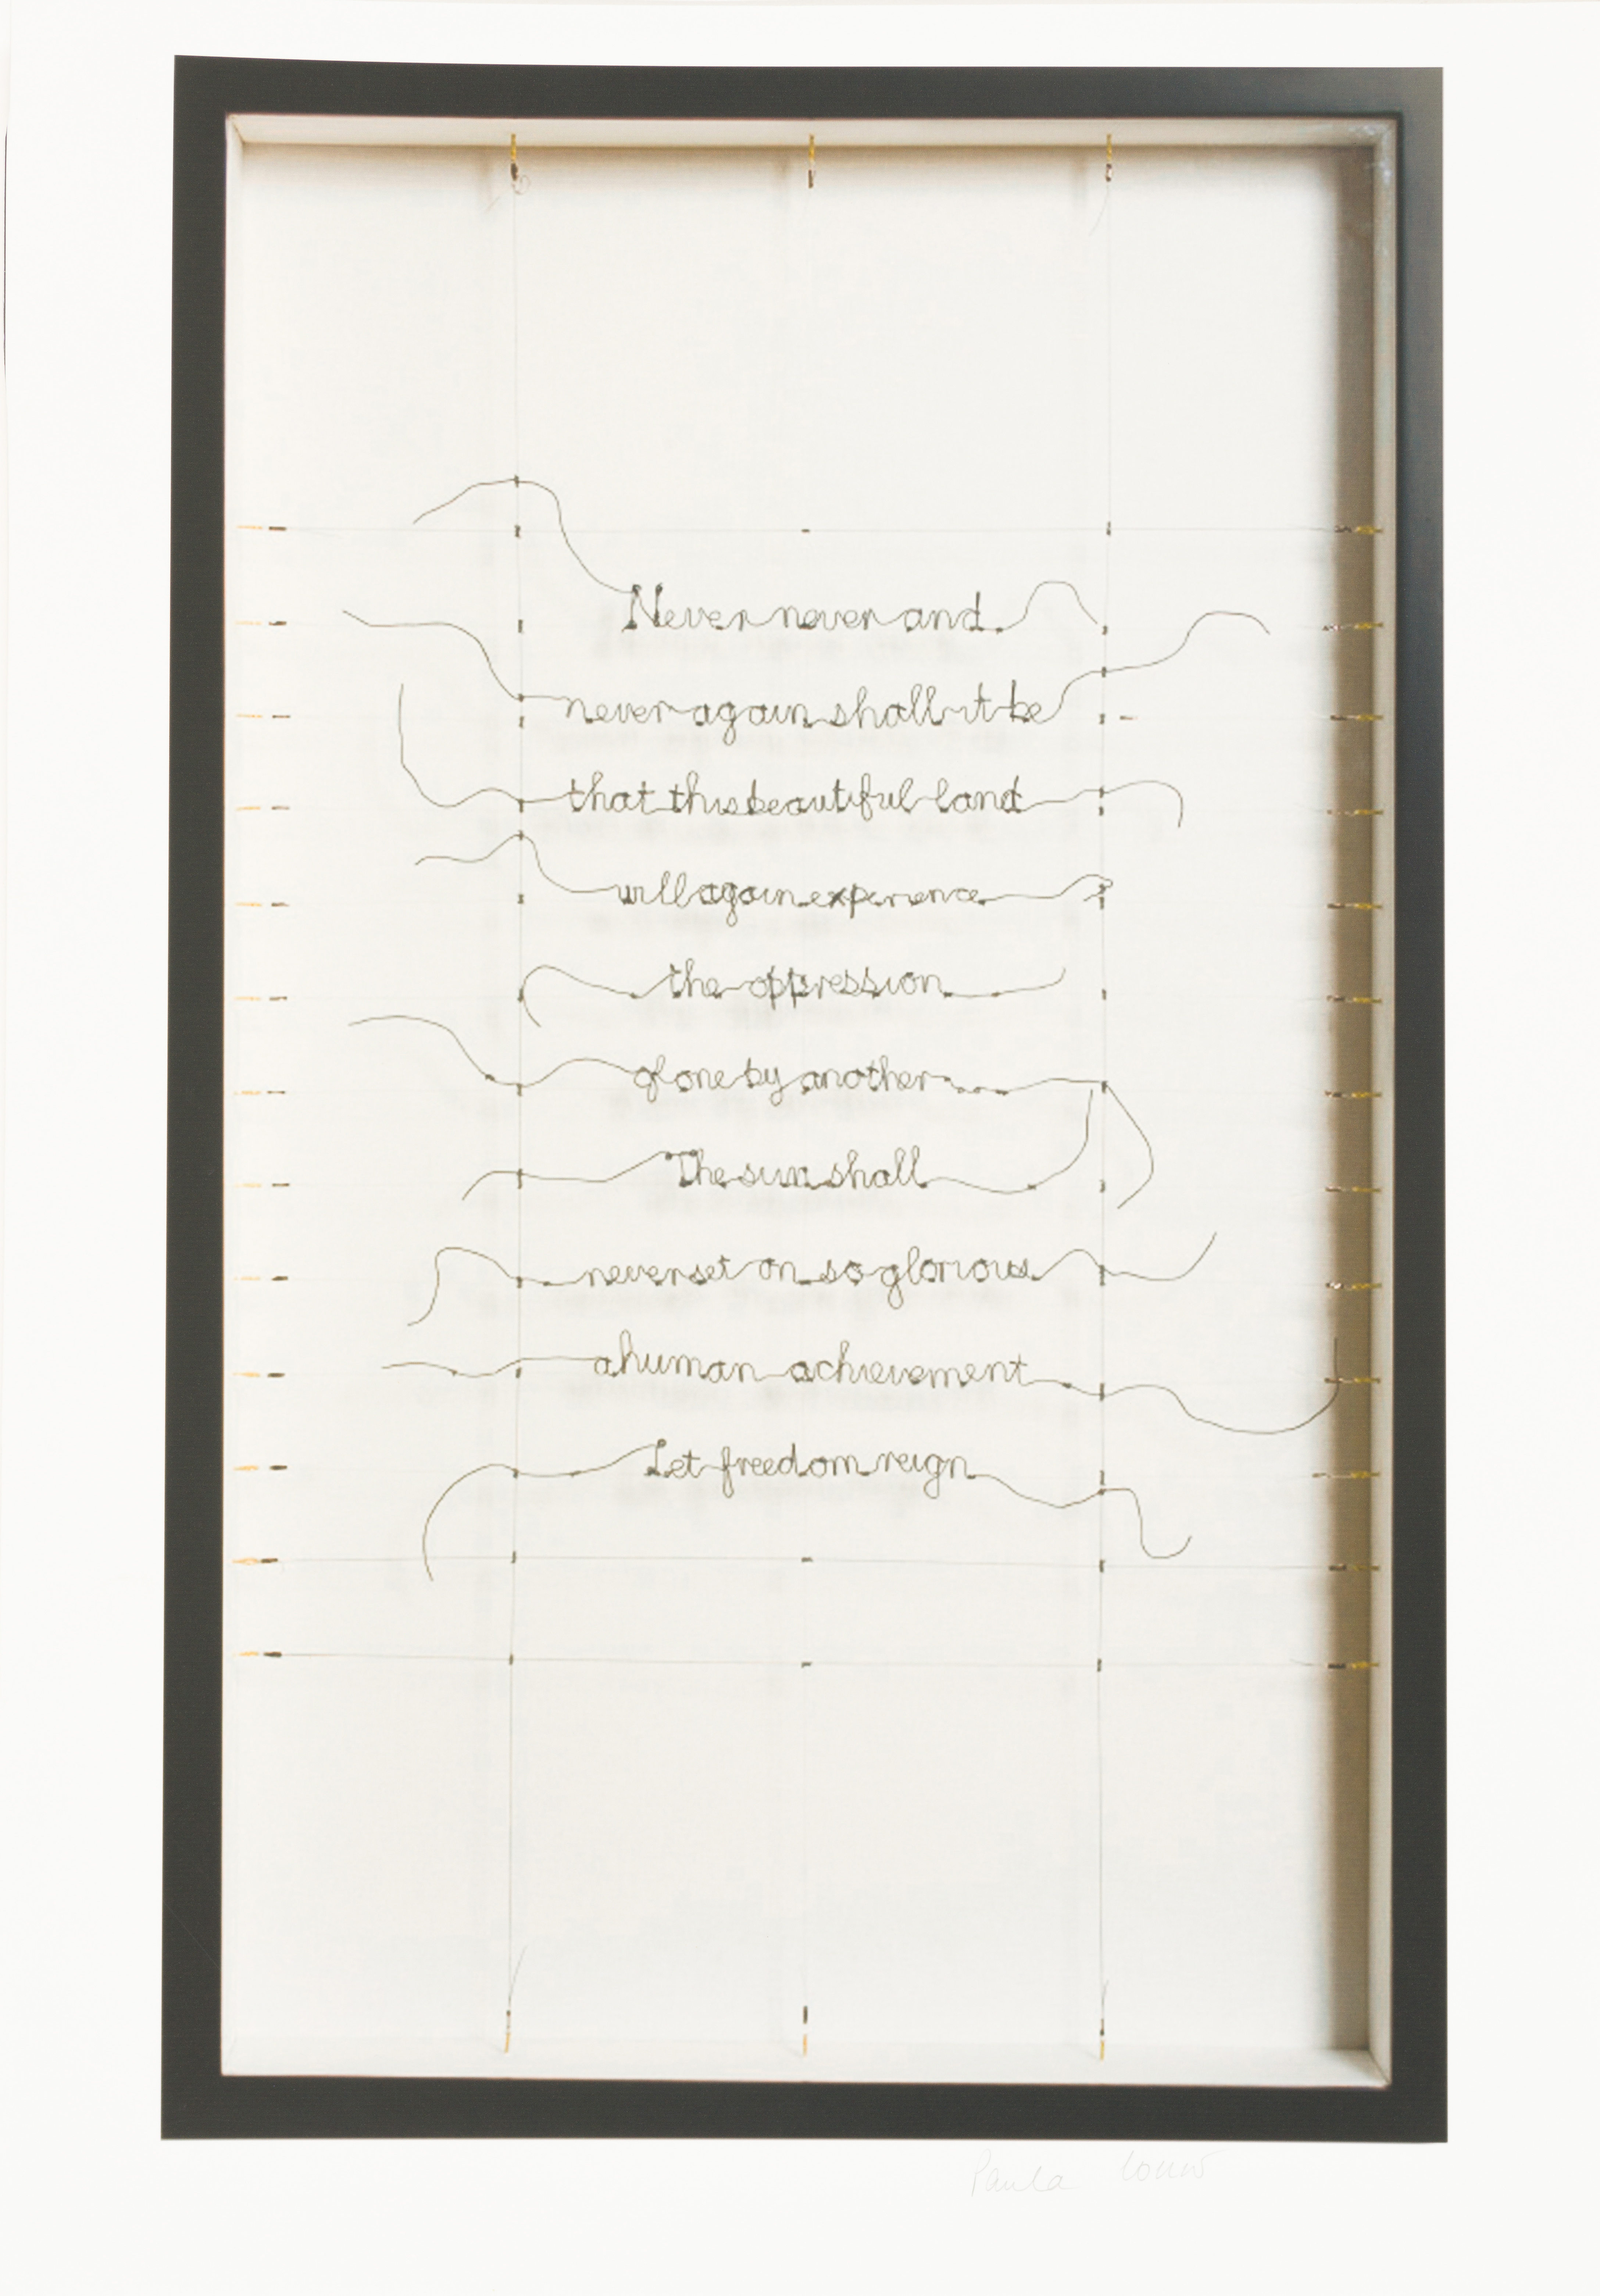 Never never and
never again shall it be
that this beautiful land
will again experience
the oppression
of one by another
The sun shall
never set on so glorious
a human achievement
Let freedom reign
Paula Louw